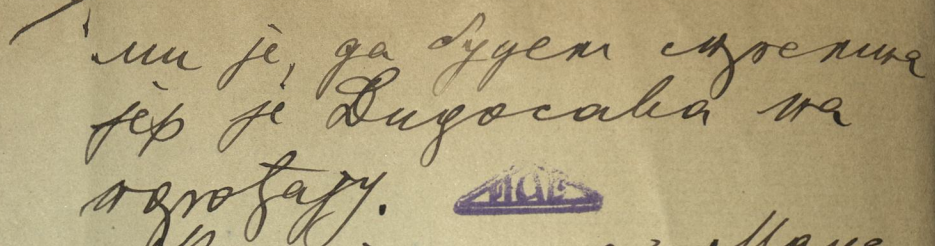 ми је, да будем стрпљива
јер је Видосава на
порођају.